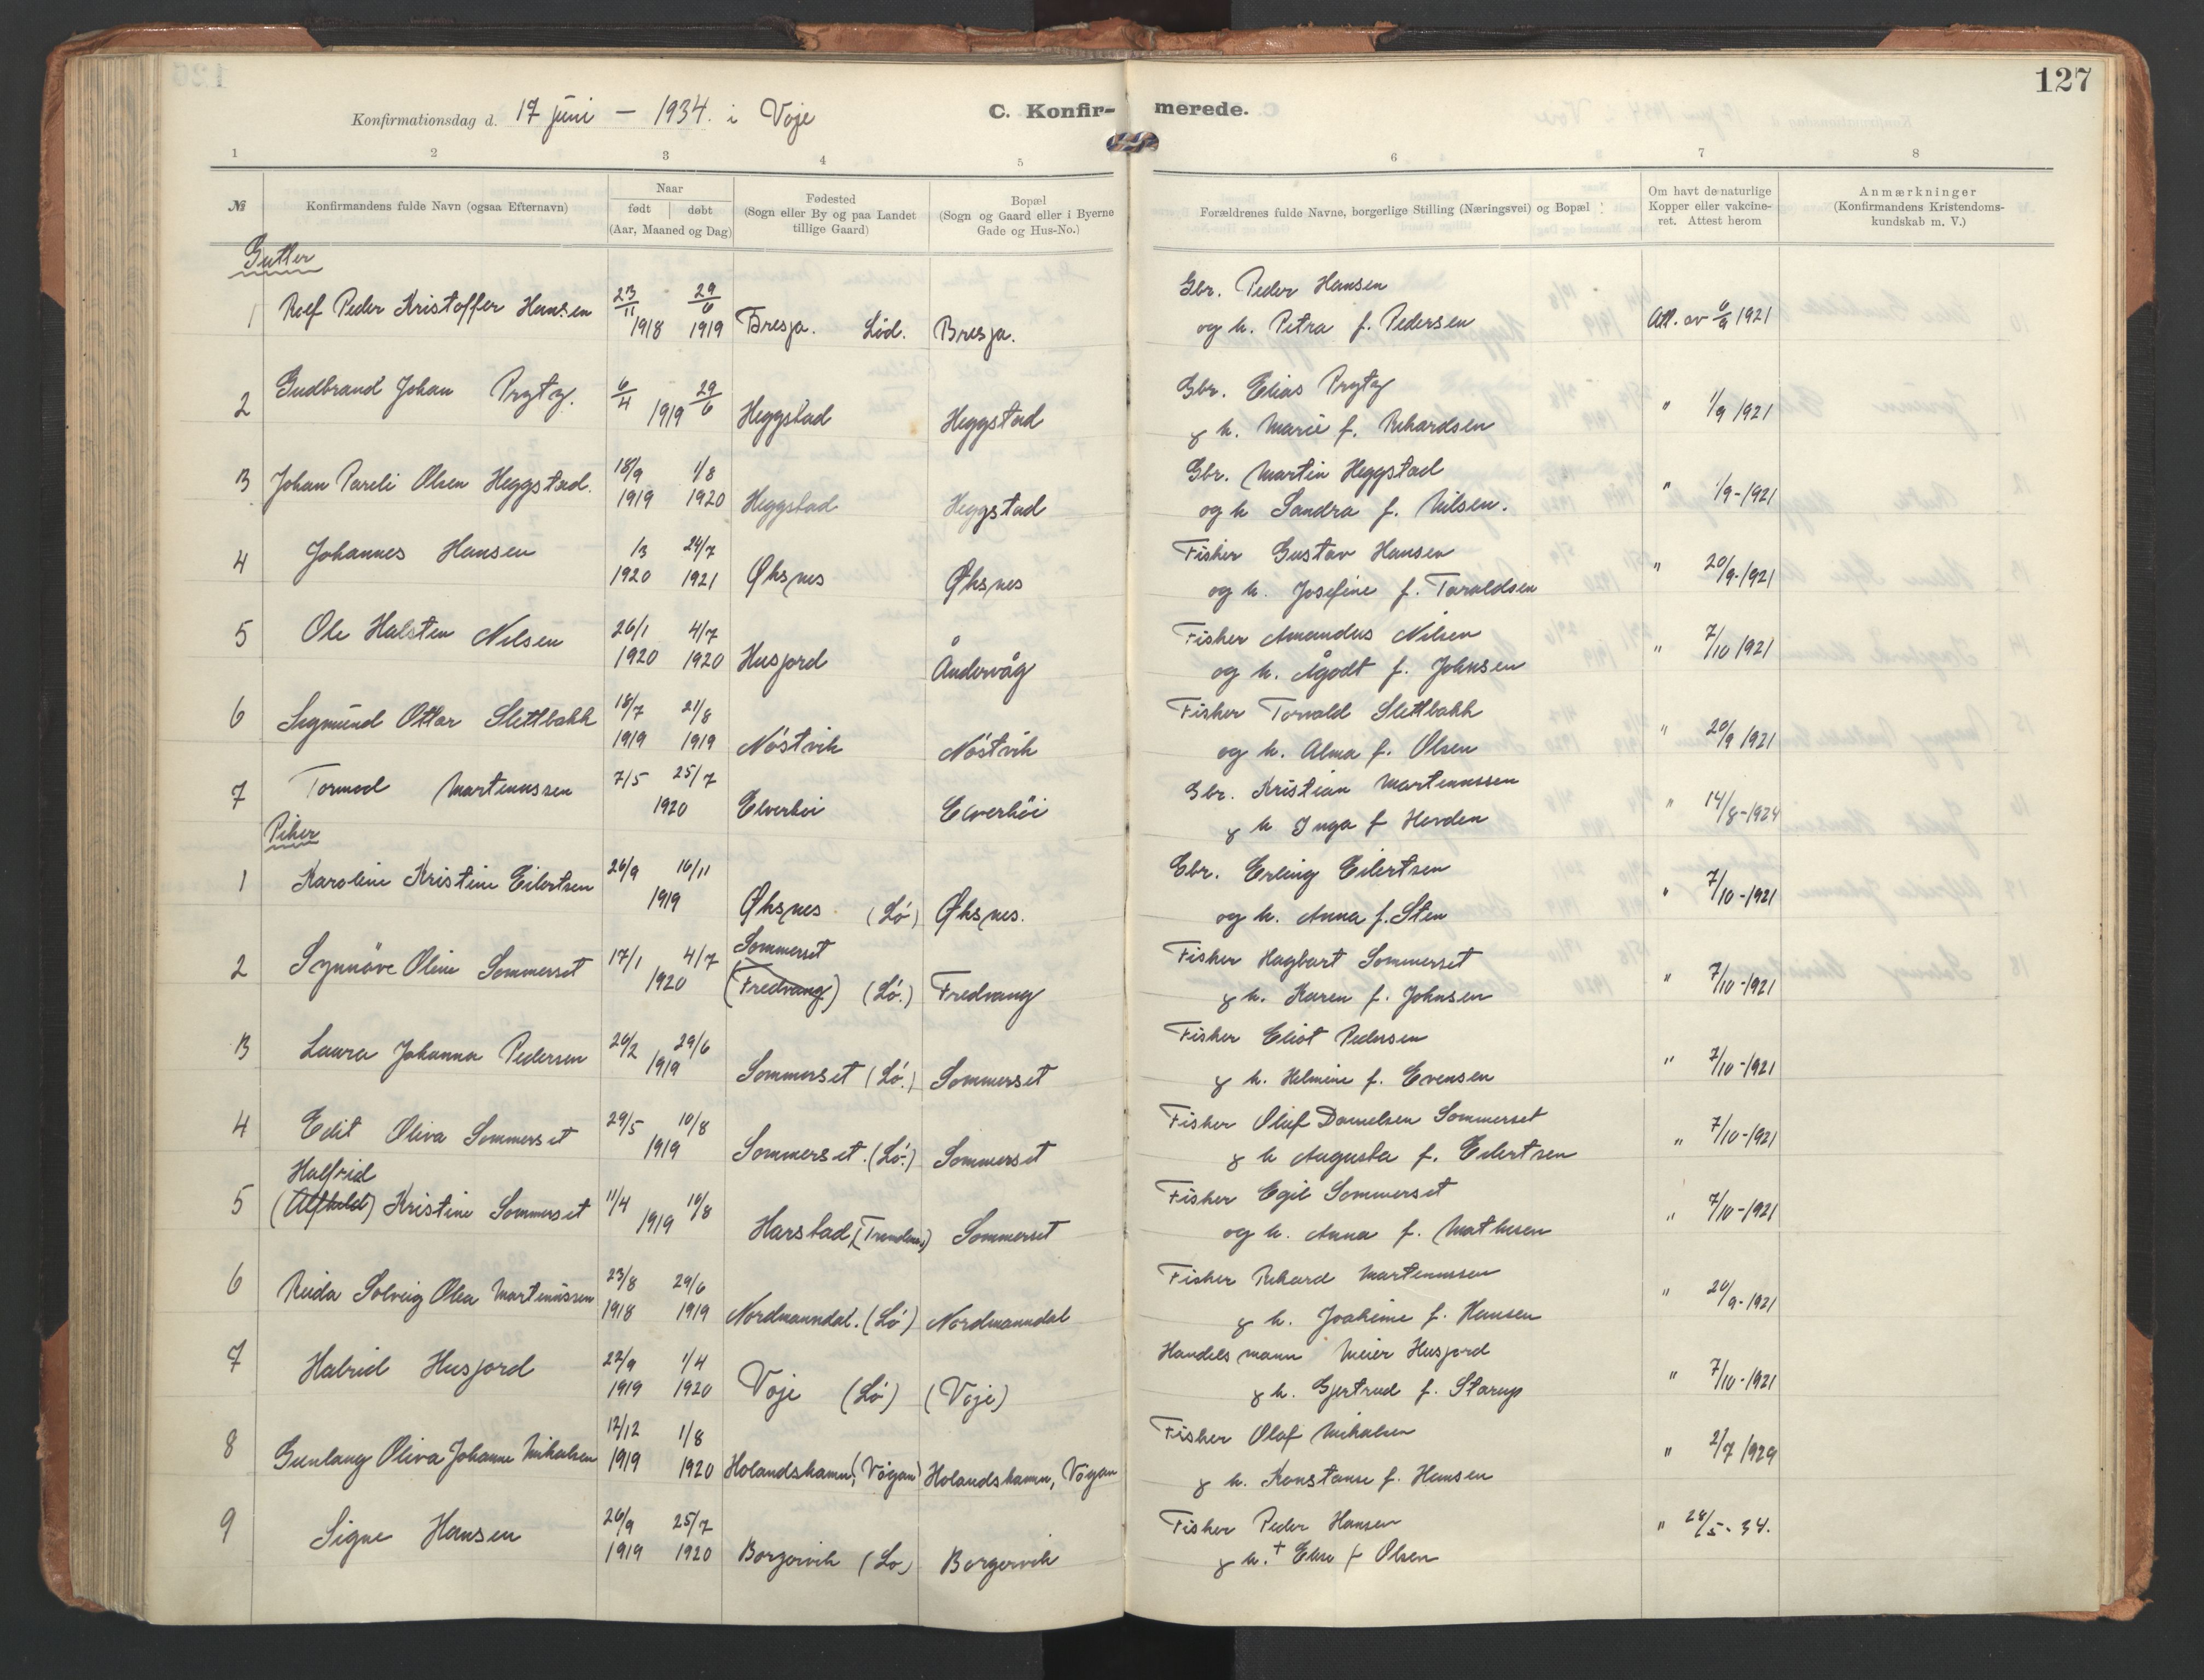 127
Konfirmationsdag d. 17 juni – 1934. i Voje
C. Konfir- merede.
1 2 3 4 5 6 7 8
№
Konfirmandens fulde Navn (ogsaa Efternavn)
Naar
født døbt
(Aar, Maaned og Dag)
Fødested
(Sogn eller By og paa Landet
tillige Gaard)
Bopæl
(Sogn og Gaard eller i Byerne
Gade og Hus-No.)
Forældrenes fulde Navne, borgerlige Stilling (Næringsvei) og Bopæl
Om havt de naturlige
Kopper eller vakcine-
ret. Attest herom
Anmærkninger
(Konfirmandens Kristendoms-
kundskab m. V.)
Gutter
1 Rolf Peder Kristoffer Hansen 23/11 1918 29/6 1919 Bresja. Lød. Bresja. Gbr. Peder Hansen
og h. Petra f. Pedersen Att. av 6/9 1921
2 Gudbrand Johan Prytz. 6/4 29/6 1919 Heggstad Heggstad Gbr. Elias Prytz
& h. Marie f. Rikardsen " 1/9 1921
3 Johan Pareli Olsen Heggstad. 18/9 1919 1/8 1920 Heggstad Heggstad Gbr. Martin Heggstad
og h Sandra f. Nilsen. " 1/9-1921
4 Johannes Hansen 1/3 1920 24/7 1921 Øksnes Øksnes Fisker Gustav Hansen
og h. Josefine f. Taraldsen " 20/9-1921
5 Ole Halsten Nilsen 26/1 1920 4/7 1920 Husjord Åndervåg Fisker Amandus Nilsen
og h. Ågodt f. Johnsen " 7/10 1921
6 Sigmund Ottar Slettbakk 18/7 1919 21/8 1919 Nöstvik Nöstvik Fisker Torvald Slettbakk
og h. Alma f. Olsen " 20/9 1921
7 Tormod Martenussen 7/5 25/7 1920 Elverhöi Elverhöi Gbr. Kristian Martenussen
& h Inga f Hovden " 14/8-1924
Piker
1 Karoline Kristine Eilertsen 26/9 16/11 1919 Øksnes (Lö) Øksnes. Gbr. Erling Eilertsen
og h. Anna f. Sten " 7/10-1921
2 Synnöve Oline Sommerset 17/1 4/7 1920 Sommerset (Fredvang) (Lö.) Fredvang Fisker Hagbart Sommerset
& h. Karen f. Johnsen " 7/10-1921
3 Laura Johanna Pedersen 26/2 29/6 1919 Sommerset (Lö.) Sommerset Fisker Eliot Pedersen
& h. Helmine f. Evensen " 7/10-1921
4 Edit Oliva Sommerset 29/5 10/8 1919 Sommerset. (Lö.) Sommerset Fisker Oluf Danielsen Sommerset
& h Augusta f. Eilertsen " 7/10-1921
Halfrid
5 (Alfhild) Kristine Sommerset 11/4 10/8 1919 Harstad, (Trondenes) Sommerset Fisker Egil Sommerset
og h. Anna f. Mathisen " 7/10-1921
6 Solveig Olea Martinussen 23/8 1918 29/6 1919 Nordmanndal. (Lö) Nordmanndal Fisker Rikard Martenussen
& h. Joakime f. Hansen " 20/9-1921
7 Halrid Husjord 22/9 1919 1/4 1920 Voje (Lö) (Voje) Handelsmann Meier Husjord
& h. Gjertrud f. Starup " 7/10-1921
8 Gunlaug Oliva Johanne Mikalsen 12/12 1919 1/8 1920 Holandshamn, (Vögan) Holandshamn, Vögan Fisker Olaf Mikalsen
& h. Konstanse f. Hansen " 2/7 1929
9 Signe Hansen 26/9 1919 25/7 1920 Borgervik (Lö) Borgervik Fisker Peder Hansen
& h. + Elise f Olsen " 28/5-34.